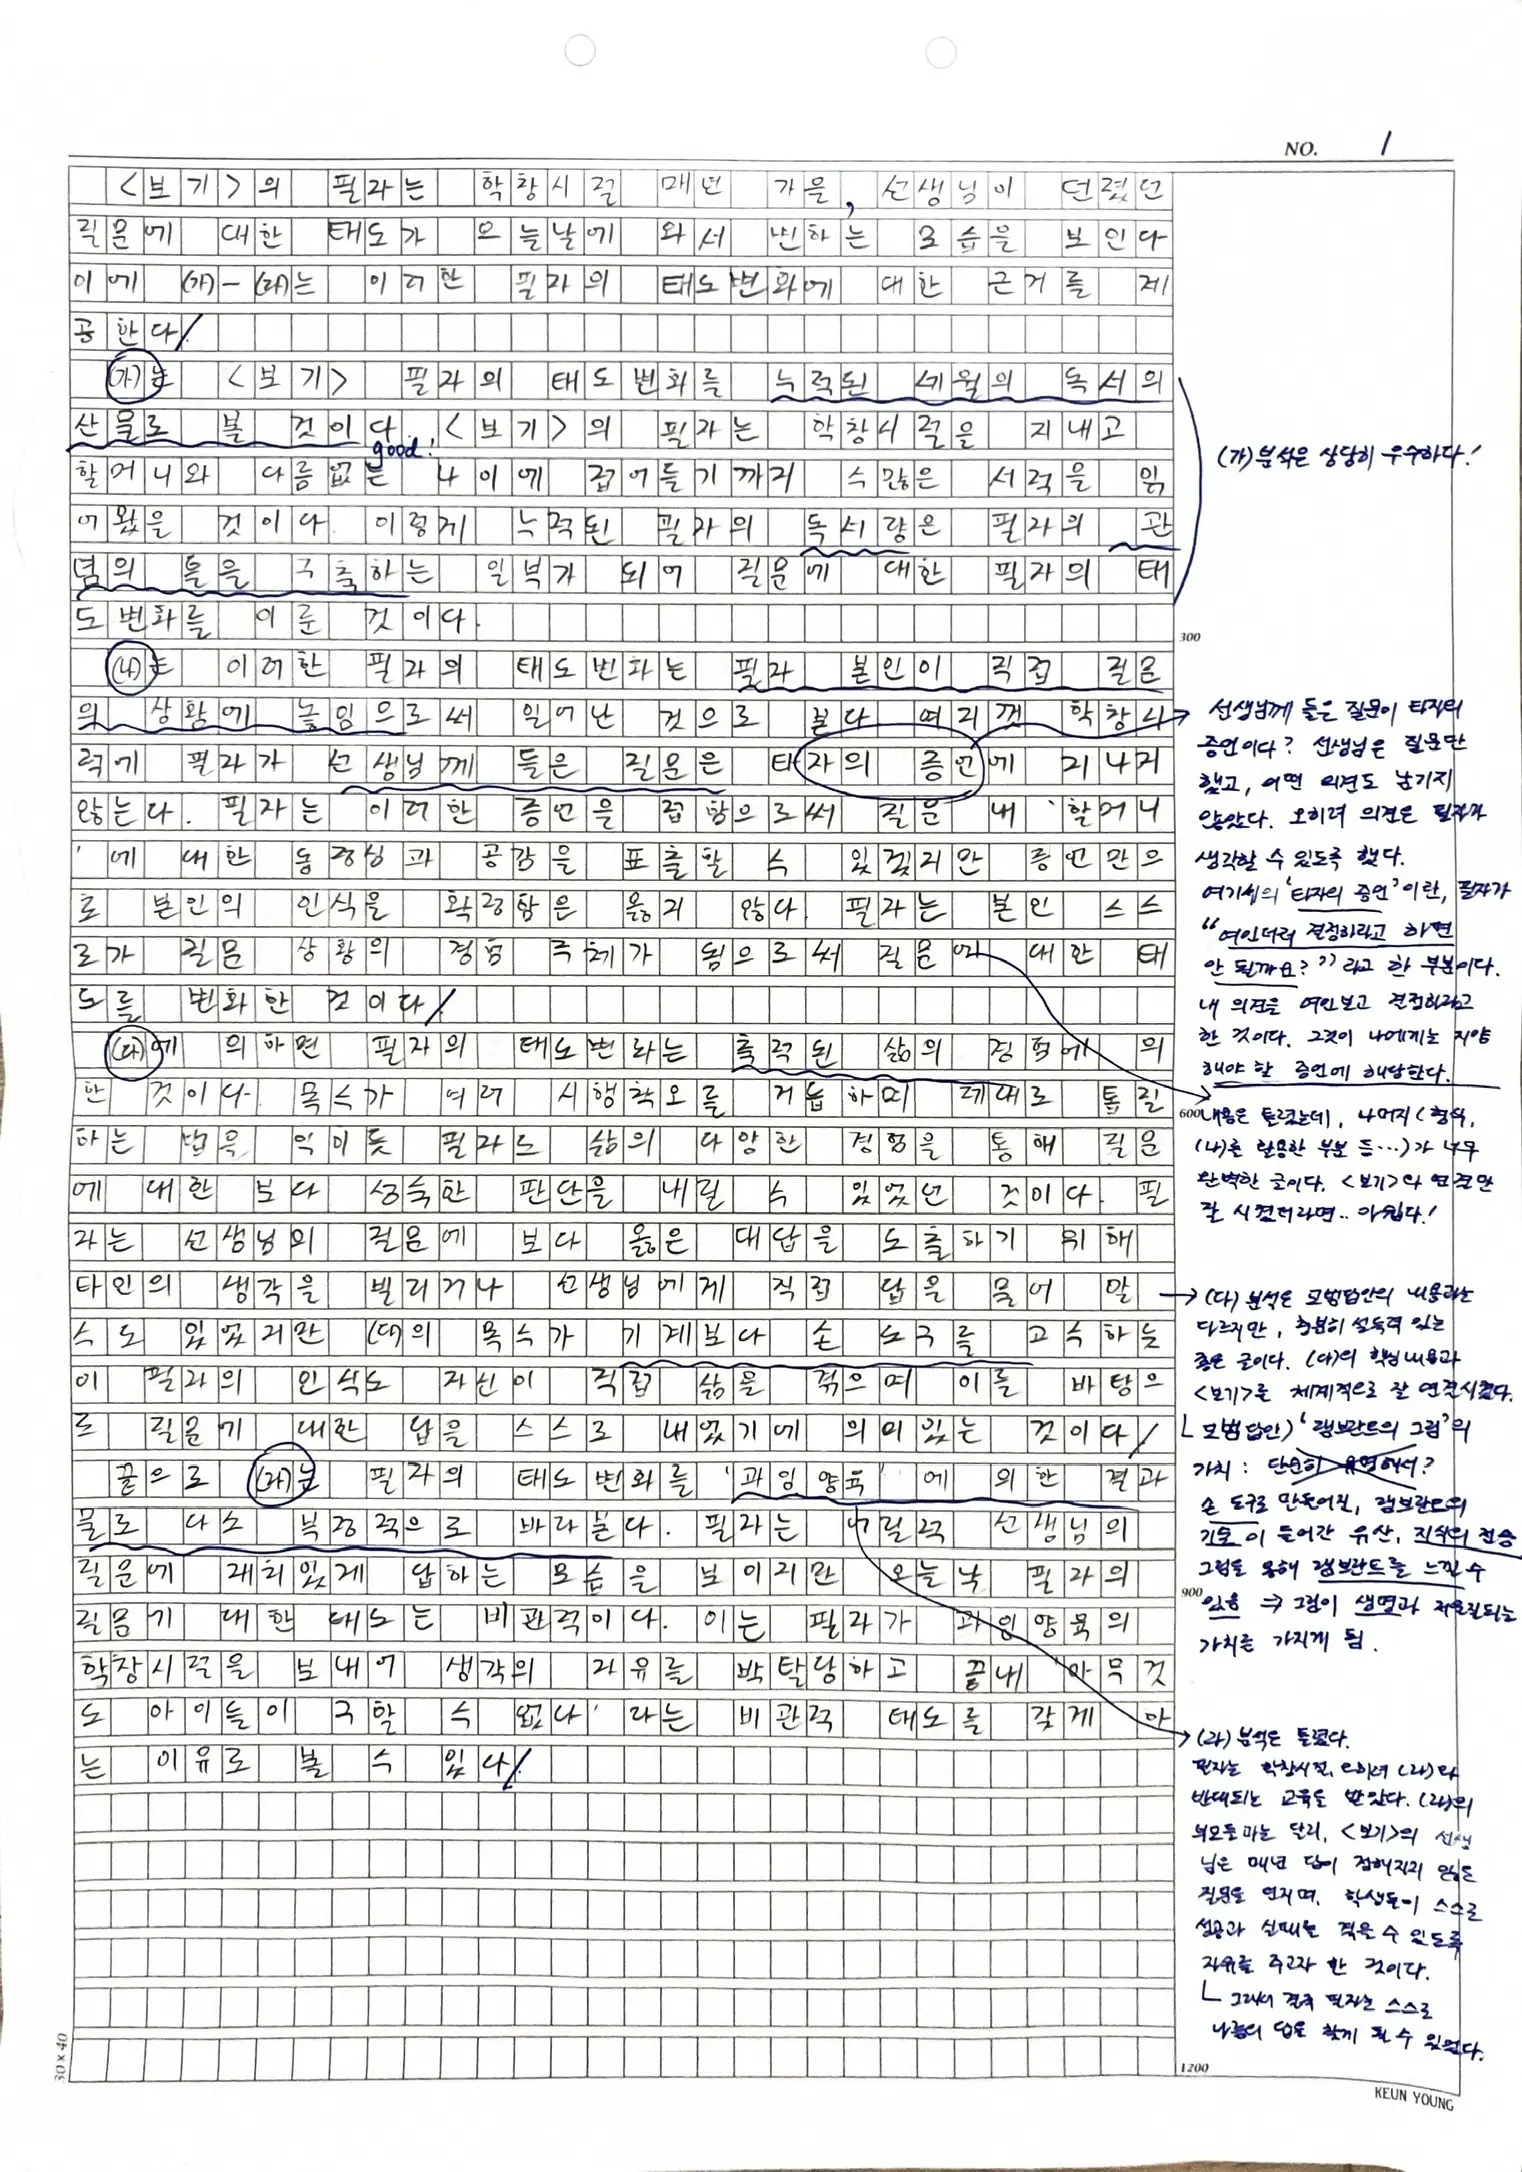 NO. 1
<보기>의 필자는 학창시절 매년 가을, 선생님이 던졌던
질문에 대한 태도가 오늘날에 와서 변하는 모습을 보인다
이에 (가)-(라)는 이러한 필자의 태도변화에 대한 근거를 제
공한다/
(가)는 <보기> 필자의 태도변화를 누적된 세월의 독서의
산물로 본 것이다. <보기>의 필자는 학창시절은 지내고
good!
할머니와 다름없는 나이에 접어들기까지 수많은 서적을 읽
어왔을 것이다. 이렇게 누적된 필자의 독서량은 필자의 관
념의 틀을 구축하는 일부가 되어 질문에 대한 필자의 태
도변화를 이룬 것이다.
300
(가)분석은 상당히 우수하다!
(나)는 이러한 필자의 태도변화는 필자 본인이 직접 질문
의 상황에 놓임으로써 일어난 것으로 본다 여지껏 학창시
절에 필자가 선생님께 들은 질문은 타자의 증언에 지나지
않는다. 필자는 이러한 증언을 접함으로써 질문 내 '할머니
'에 대한 동정심과 공감을 표출할 수 있겠지만 증언만으
로 본인의 인식을 확장함은 옳지 않다. 필자는 본인 스스
로가 질문 상황의 경험 주체가 됨으로써 질문에 대한 태
도를 변화한 것이다/
선생님께 들은 질문이 타자의
증언이다? 선생님은 질문만
했고, 어떤 의견도 남기지
않았다. 오히려 의견은 필자가
생각할 수 있도록 했다.
여기서의 '타자의 증언'이란, 필자가
"여인더러 결정하라고 하면
안 될까요?"라고 한 부분이다.
내 의견을 여인보고 결정하라고
한 것이다. 그것이 나에게는 지양
해야 할 증언에 해당한다.
(다)에 의하면 필자의 태도변화는 축적된 삶의 경험에 의
한 것이다. 목수가 여러 시행착오를 거듭하며 제대로 톱질
하는 법을 익히듯 필자도 삶의 다양한 경험을 통해 질문
에 대한 보다 성숙한 판단을 내릴 수 있었던 것이다. 필
자는 선생님의 질문에 보다 옳은 대답을 도출하기 위해
타인의 생각을 빌리거나 선생님에게 직접 답을 물어 말
수도 있었지만 (다)의 목수가 기계보다 손 도구를 고수하는
이 필자의 인식도 자신이 직접 삶을 겪으며 이를 바탕으
로 질문에 대한 답을 스스로 내었기에 의미있는 것이다/
600
내용은 틀렸는데, 나머지(형식,
(나)를 활용한 부분 등…)가 너무
완벽한 글이다. <보기>와 연결만
잘 시켰더라면.. 아쉽다!
(다) 분석은 모범답안의 내용과는
다르지만, 충분히 설득력 있는
좋은 글이다. (다)의 핵심내용과
<보기>를 체계적으로 잘 연결시켰다.
모범답안) '램브란트의 그림'의
가치: 단순히 유명해서?
손 도구로 만들어진, 램브란트의
이 들어간 유산, 지식의 전승
그림을 통해 램브란트를 느낄 수
있음 ⇒ 그림이 생명과 직결되는
가치를 가지게 됨.
끝으로 (라)는 필자의 태도변화를 '과잉양육'에 의한 결과
물로 다소 부정적으로 바라본다. 필자는 어릴적 선생님의
질문에 재치있게 답하는 모습을 보이지만 오늘날 필자의
질문에 대한 태도는 비관적이다. 이는 필자가 과잉양육의
학창시절을 보내어 생각의 자유를 박탈당하고 끝내 '아무것
도 아이들이 구할 수 없다'라는 비관적 태도를 갖게 하
는 이유로 볼 수 있다/
900
(라) 분석은 틀렸다.
필자는 학창시절, 오히려 (라)와
반대되는 교육을 받았다. (라)의
부모들과는 달리, <보기>의 선생
님은 매년 답이 정해지지 않은
질문을 던지며, 학생들이 스스로
성공과 실패를 겪을 수 있도록
자유를 주고자 한 것이다.
그래서 결국 필자는 스스로
나름의 답을 찾게 될 수 있었다.
1200
30×40
KEUN YOUNG